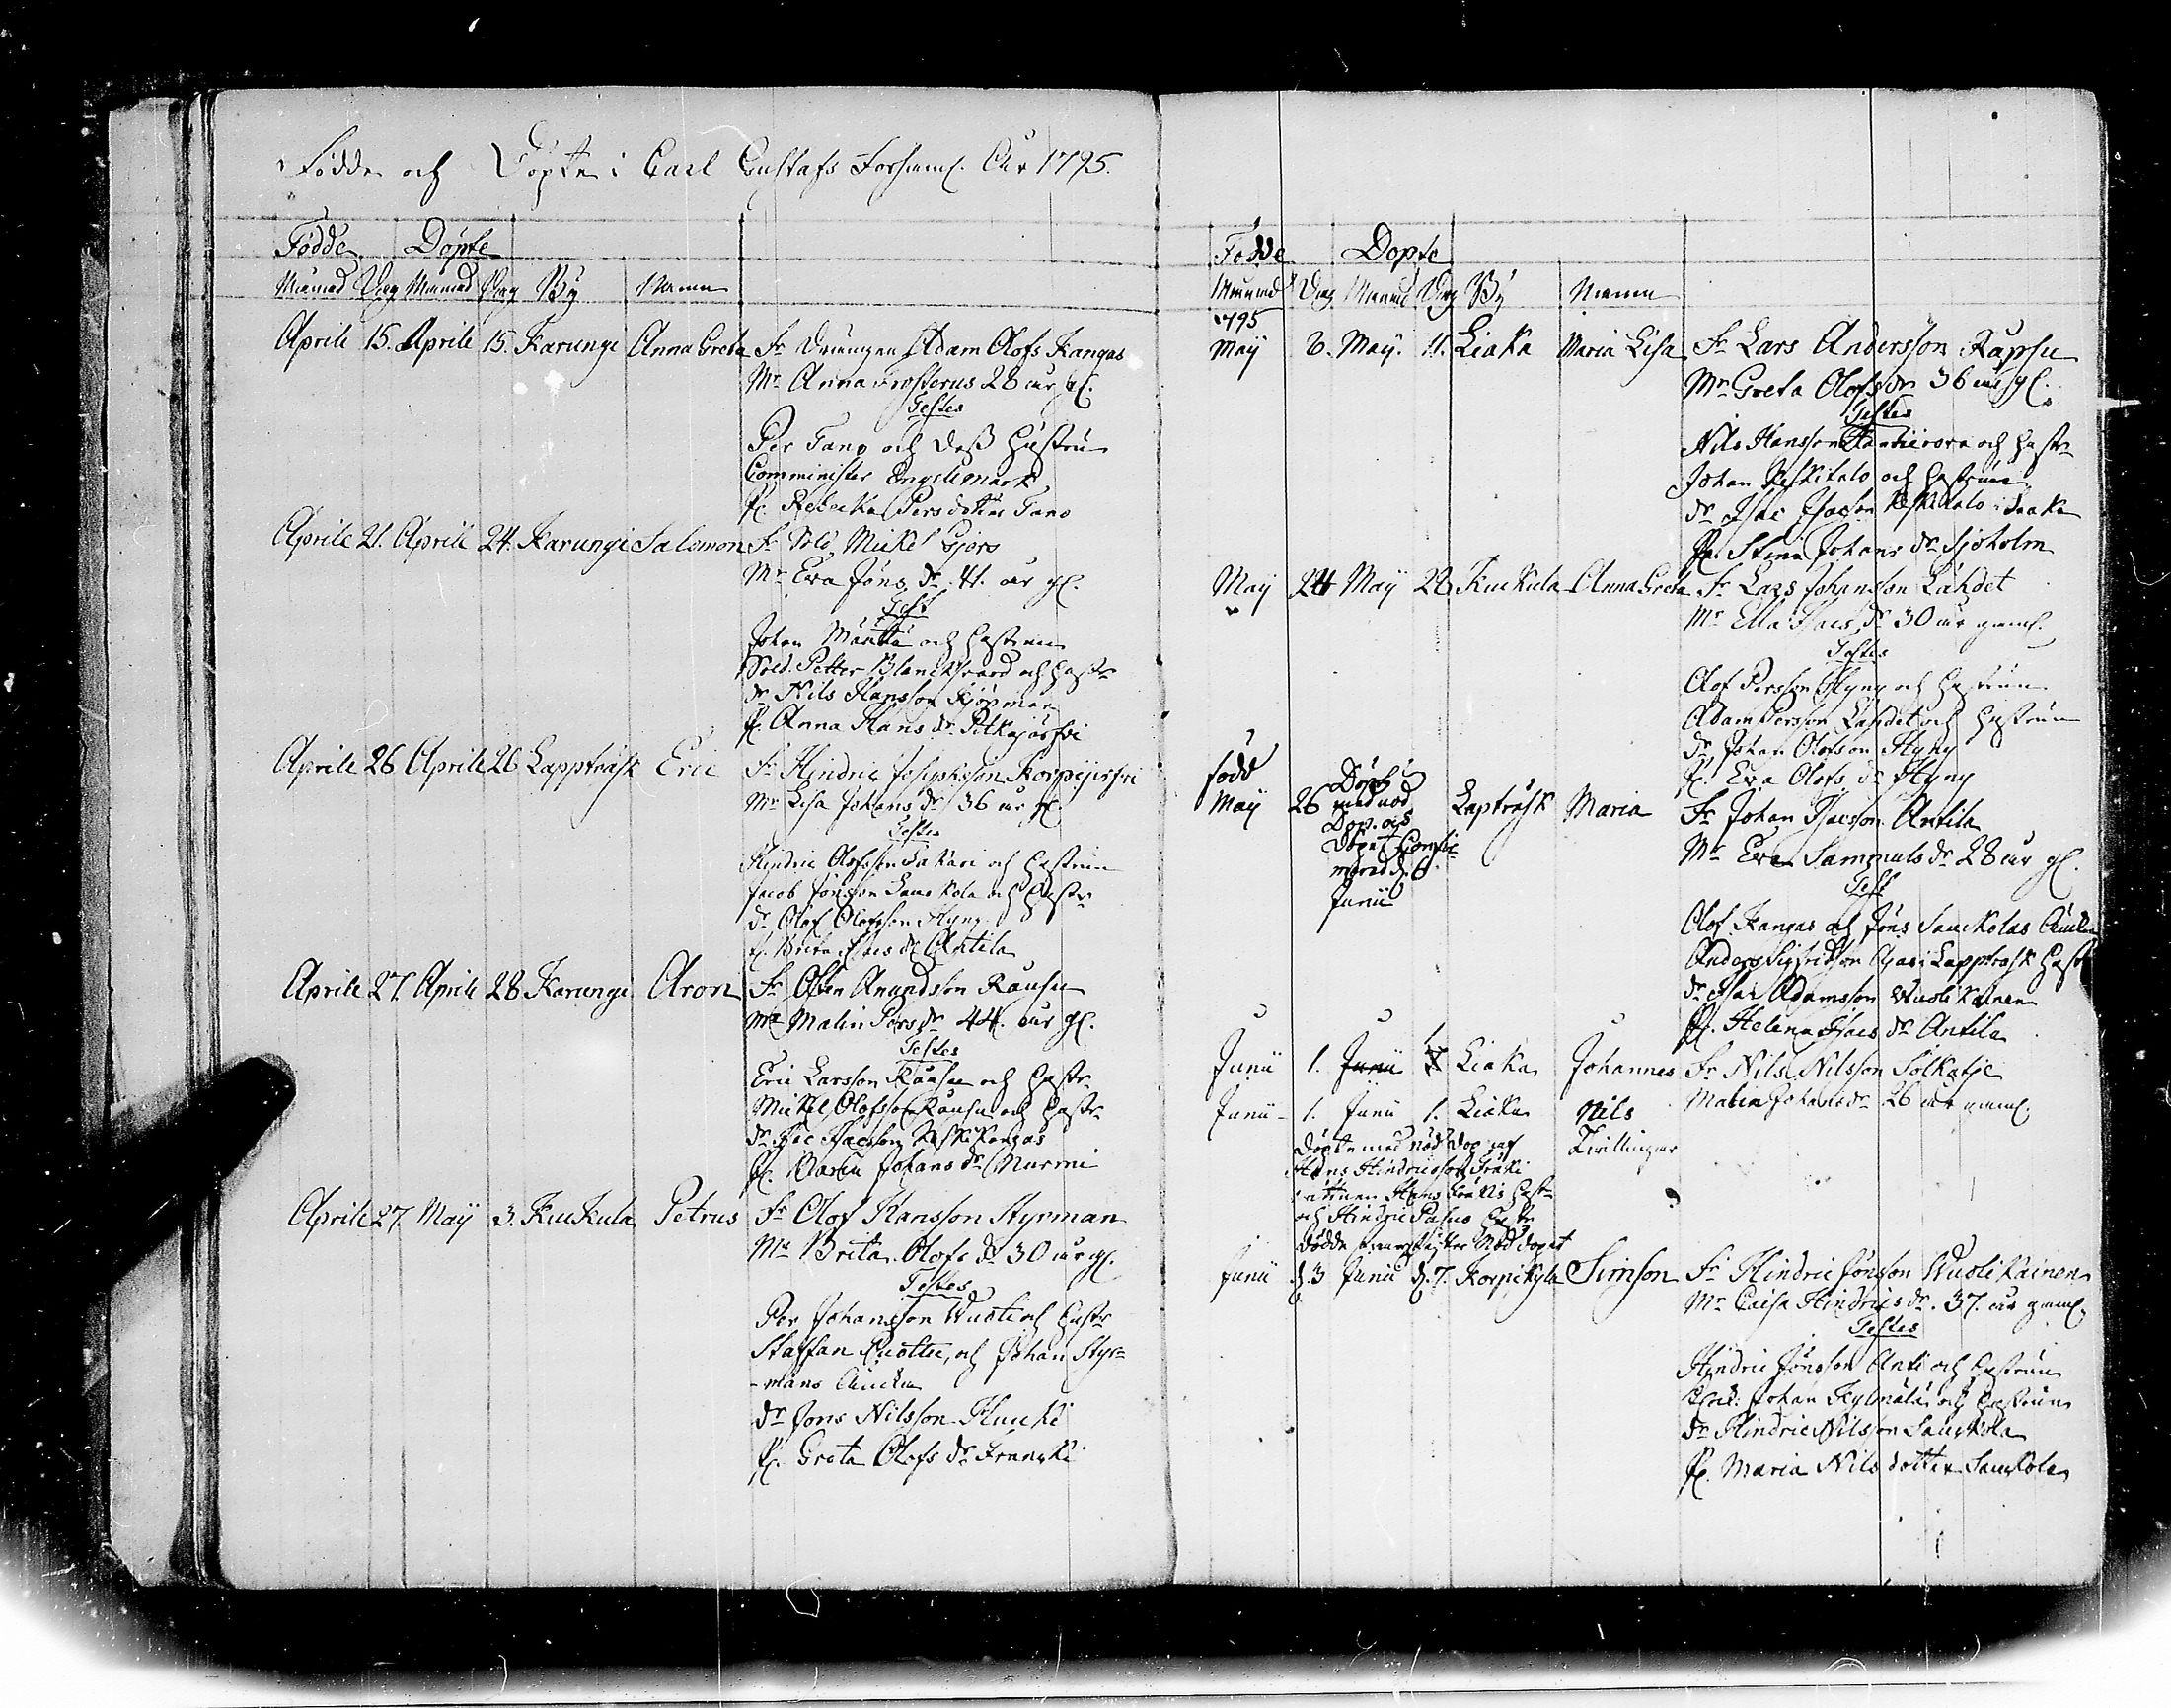 Födde och Döpte i Carl Gustafs Forsaml. Åhr 1795.
Födde Döpte
Månad Dag Månad Dag By Namn
Aprile 15. Aprile 15. Karungi Anna Greta Fr Drängen Adam Olofs Kangas
Mr Anna Frosterus 28 år gl.
Testes
Per Tano och dess hustru
Comminister Engelmark
P. Rebecka Persdotter Tano
Aprile 21. Aprile 24. Karungi Salomon Fr Sold. Mickel Gjörs
Mr Eva Jöns dr 41. år gl.
Test
Johan Mäntta och hustrun
Sold. Petter Blancksvärd och hustr
dr Nils Hansson Björnman
P. Anna Hans dr Pitkäjärfvi
Aprile 26 Aprile 26 Lappträsk Eric Fr Hindric Josephsson Korpijärfvi
Mr Lisa Johans dr 36 år gl
Testes
Hindric Olofsson Lakari och hustrun
Jacob Jönsson Lauckola och hustr
dr Olof Olofsson Hyny
P. Brita Isacs dr Antila
Aprile 27. Aprile 28 Karungi Aron Fr Östen Anundsson Rausu
Mr Malin Pers dr 44. år gl.
Testes
Eric Larsson Rausu och hustr
Mickel Olofsson Rausu och hustr
dr Isac Isacsson Keskikangas
P. Maria Johans dr Nurmi
Aprile 27. May 3. Kuckula Petrus Fr Olof Hansson Styrman
Mr Brita Olofs dr 30 år gl.
Testes
Per Johansson Wuoti och hustr
Staffan Ruottu, och Johan Styr=
-mans Änckia
dr Jöns Nilsson Hucki
P. Greta Olofs dr Francki
Födde Döpte
Månad Dag Månad Dag By Namn
1795
May 6. May. 11. Liaka Maria Lisa Fr Lars Andersson Kapsu
Mr Greta Olofs dr 36 år gl.
Testes
Nils Hansson och hustr
Johan Keskitalo och hustrun
dr Isac Isacson Keskitalo i Liaka
P. Stina Johans dr Sjöholm
May 24 May 28 Kuckula Anna Greta Fr Lars Johansson Lahdet
Mr Ella Isacs dr 30 år gaml.
Testes
Olof Persson Hyny och hustrun
Adam Persson Lahdet och hustrun
dr Johan Olofson Hyny
P. Eva Olofs dr Hyny
född
May 26 Döpt
med nöd
Dop. och
Döpet Confir=
merad d. 6
Junii
Lapträsk Maria Fr Johan Isacsson Antila
Mr Eva Sammuls dr 28 år gl.
Test
Olof Kangas och Jöns Lauckolas Änckor
Anders Sigfridsson Ojari Lappträsk hustr
dr Isac Adamsson Wuolikainen
P. Helena Isacs dr Antila
Junii 1. Junii 1. Liaka Johannes Fr Nils Nilsson Sölkatje
Junii - 1. Junii 1. Liaka Nils Malin Johans dr 26 år gaml.
Döpte med nöddop af Tvillingar
Hans Hindricsson Fräki
Hans Fräkis hustr
och Hindric Palus hustr
Dödde efter Nöd dopet
Junii d. 3 Junii d. 7. Korpikyla Simson Fr Hindric Jönsson Wuolikainen
Mr Caisa Hindrics dr. 37. år gaml.
Testes
Hindric Jönsson Anti och hustrun
Johan Kylmälä och hustrun
dr Hindric Nilsson Lauckola
P. Maria Nils dotter Lauckola